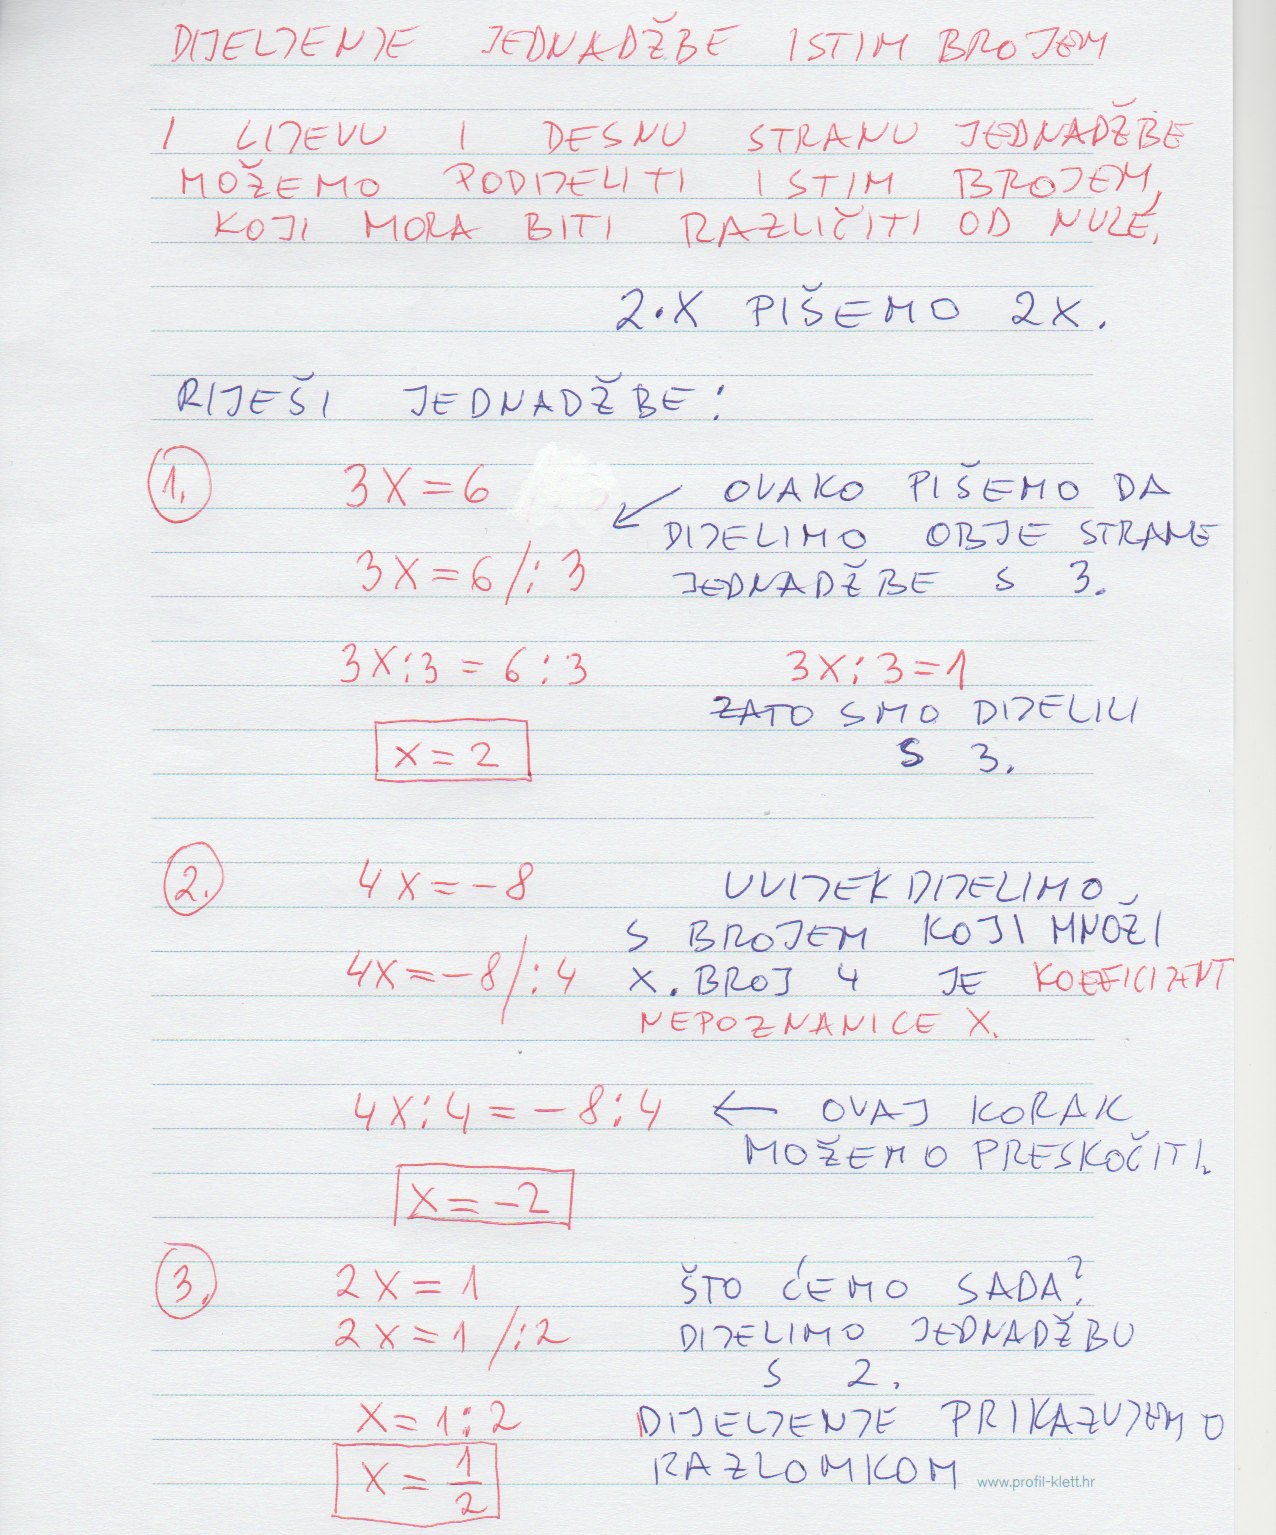 DIJELJENJE JEDNADŽBE ISTIM BROJEM
I LIJEVU I DESNU STRANU JEDNADŽBE
MOŽEMO PODIJELITI ISTIM BROJEM,
KOJI MORA BITI RAZLIČITI OD NULE.
2·X PIŠEMO 2X.
RIJEŠI JEDNADŽBE:
1. 3X=6
OVAKO PIŠEMO DA
DIJELIMO OBJE STRANE
3X=6/:3
JEDNADŽBE S 3.
3X:3=6:3
3X:3=1
ZATO SMO DIJELILI
X=2
S 3.
2. 4X=-8
UVIJEK DIJELIMO
S BROJEM KOJI MNOŽI
4X=-8/:4
X. BROJ 4 JE KOEFICIJENT
NEPOZNANICE X.
4X:4=-8:4
← OVAJ KORAK
MOŽEMO PRESKOČITI.
X=-2
3. 2X=1
ŠTO ĆEMO SADA?
2X=1/:2
DIJELIMO JEDNADŽBU
S 2.
X=1:2
DIJELJENJE PRIKAZUJEMO
X=1/2
RAZLOMKOM
www.profil-klett.hr